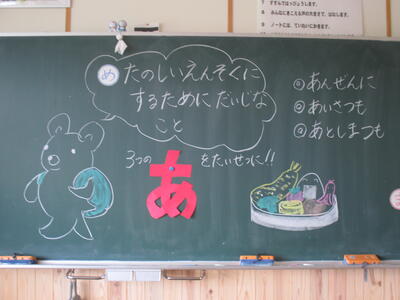 すすんではっぴょうします。
⑦ みんなにきこえる声の大きさで、はなします。
⑧ ノートには、ていねいにかきます。
め たのしいえんそくに
するためにだいじな
こと
3つの あ をたいせつに!!
◎あんぜんに
◎あいさつも
◎あとしまつも